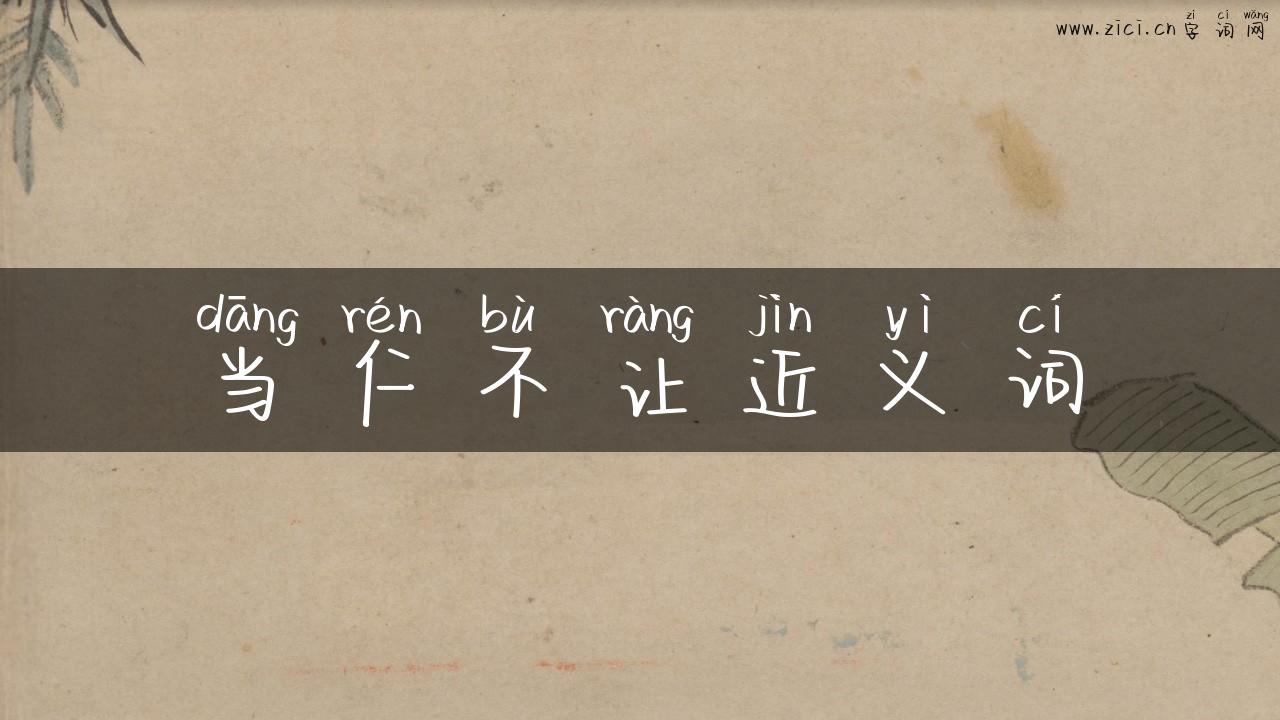 zì cí wǎng
www.zici.cn 字 词 网
dāng rén bù ràng jìn yì cí
当 仁 不 让 近 义 词